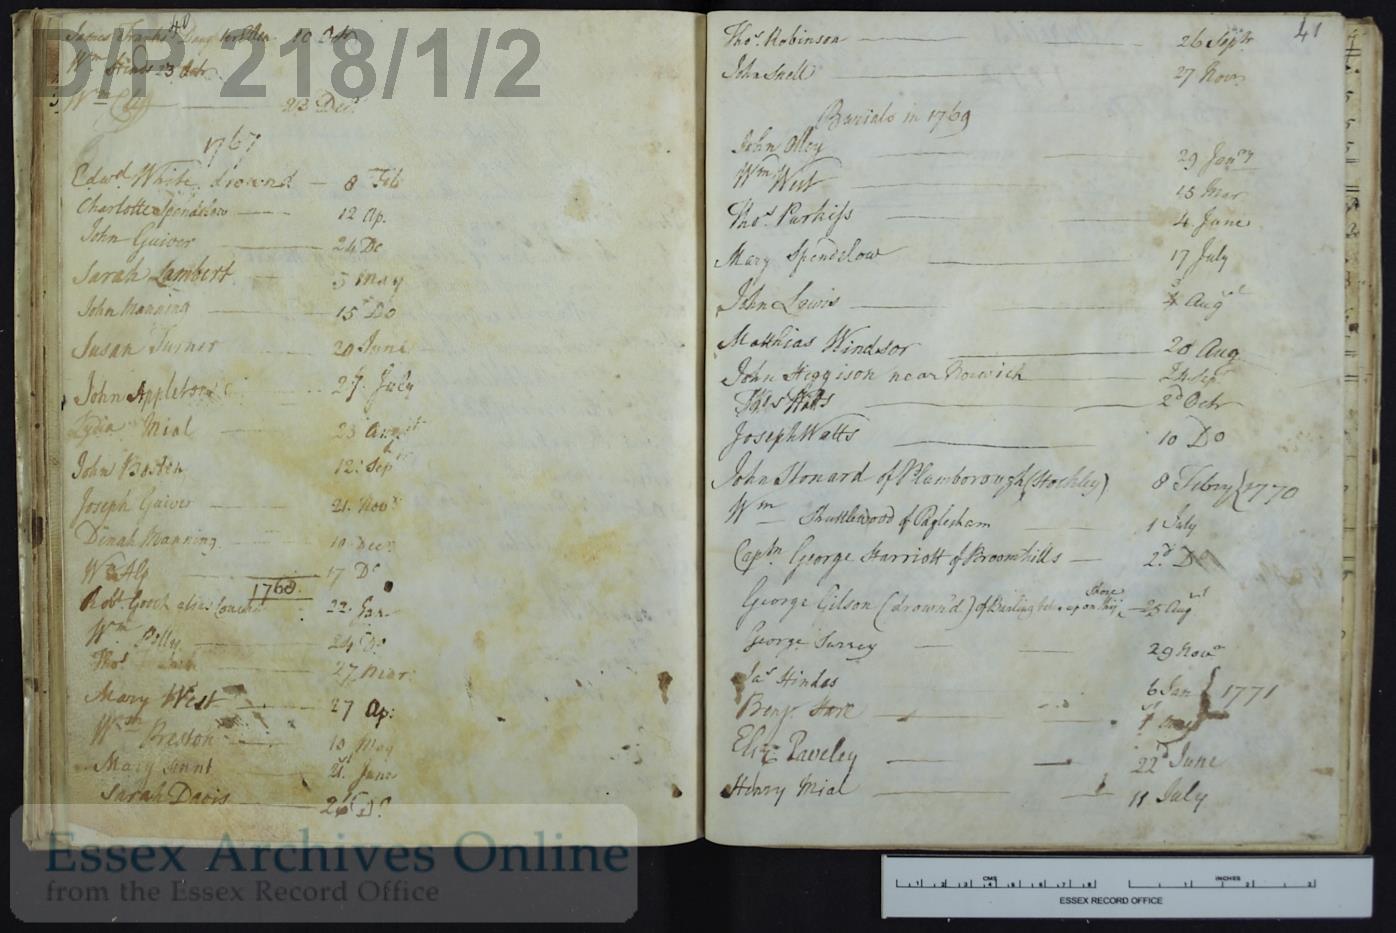 40
D/P 218/1/2
James daughter 10 Octr
Wm Hines 23 Octr
Wm Cliff 23 Decr
1767
Edwd White drownd 8 Feb
Charlotte Spendlow 12 Ap.
John Guiver 24 Do
Sarah Lambert 5 May
John Manning 15 Do
Susan Turner 20 June
John Appleton 27 July
Lydia Mial 23 August
John Basten 12th Sepr
Joseph Guiver 21 Novr
Dinah Manning 10 Decr
Wm Alp 17 Do
1768
Robt Gooch alias 22 Jan
Wm Polley 24 Do
Thos 27 Mar
Mary West 27 Ap:
Wm Preston 10 May
Mary 21st June
Sarah Davis Do
41
Thos Robinson 26 Septr
John Snell 27 Novr
Burials in 1769
John Olley 29 Janry
Wm West 15 Mar
Thos Purkiss 4 June
Mary Spendelow 17 July
John Lewis Augst
Matthias Windsor 20 Aug
John Higgison near Norwich 24 Sepr
Thos Watts 2d Octr
Joseph Watts 10 Do
John Stonard of Plumborough (Hockley) 8 Febry 1770
Wm Shuttlewood of Paglesham 1 July
Captn George Harriott of Broomhills 2d Do
George Gilson (drown'd) of Burling shore 25 Augst
George Surrey 29 Novr
Jas Hindes 6 Jan 1771
Benjn Hare
Eliz Paveley 22d June
Henry Mial 11 July
Essex Archives Online
from the Essex Record Office
CMS
INCHES
ESSEX RECORD OFFICE